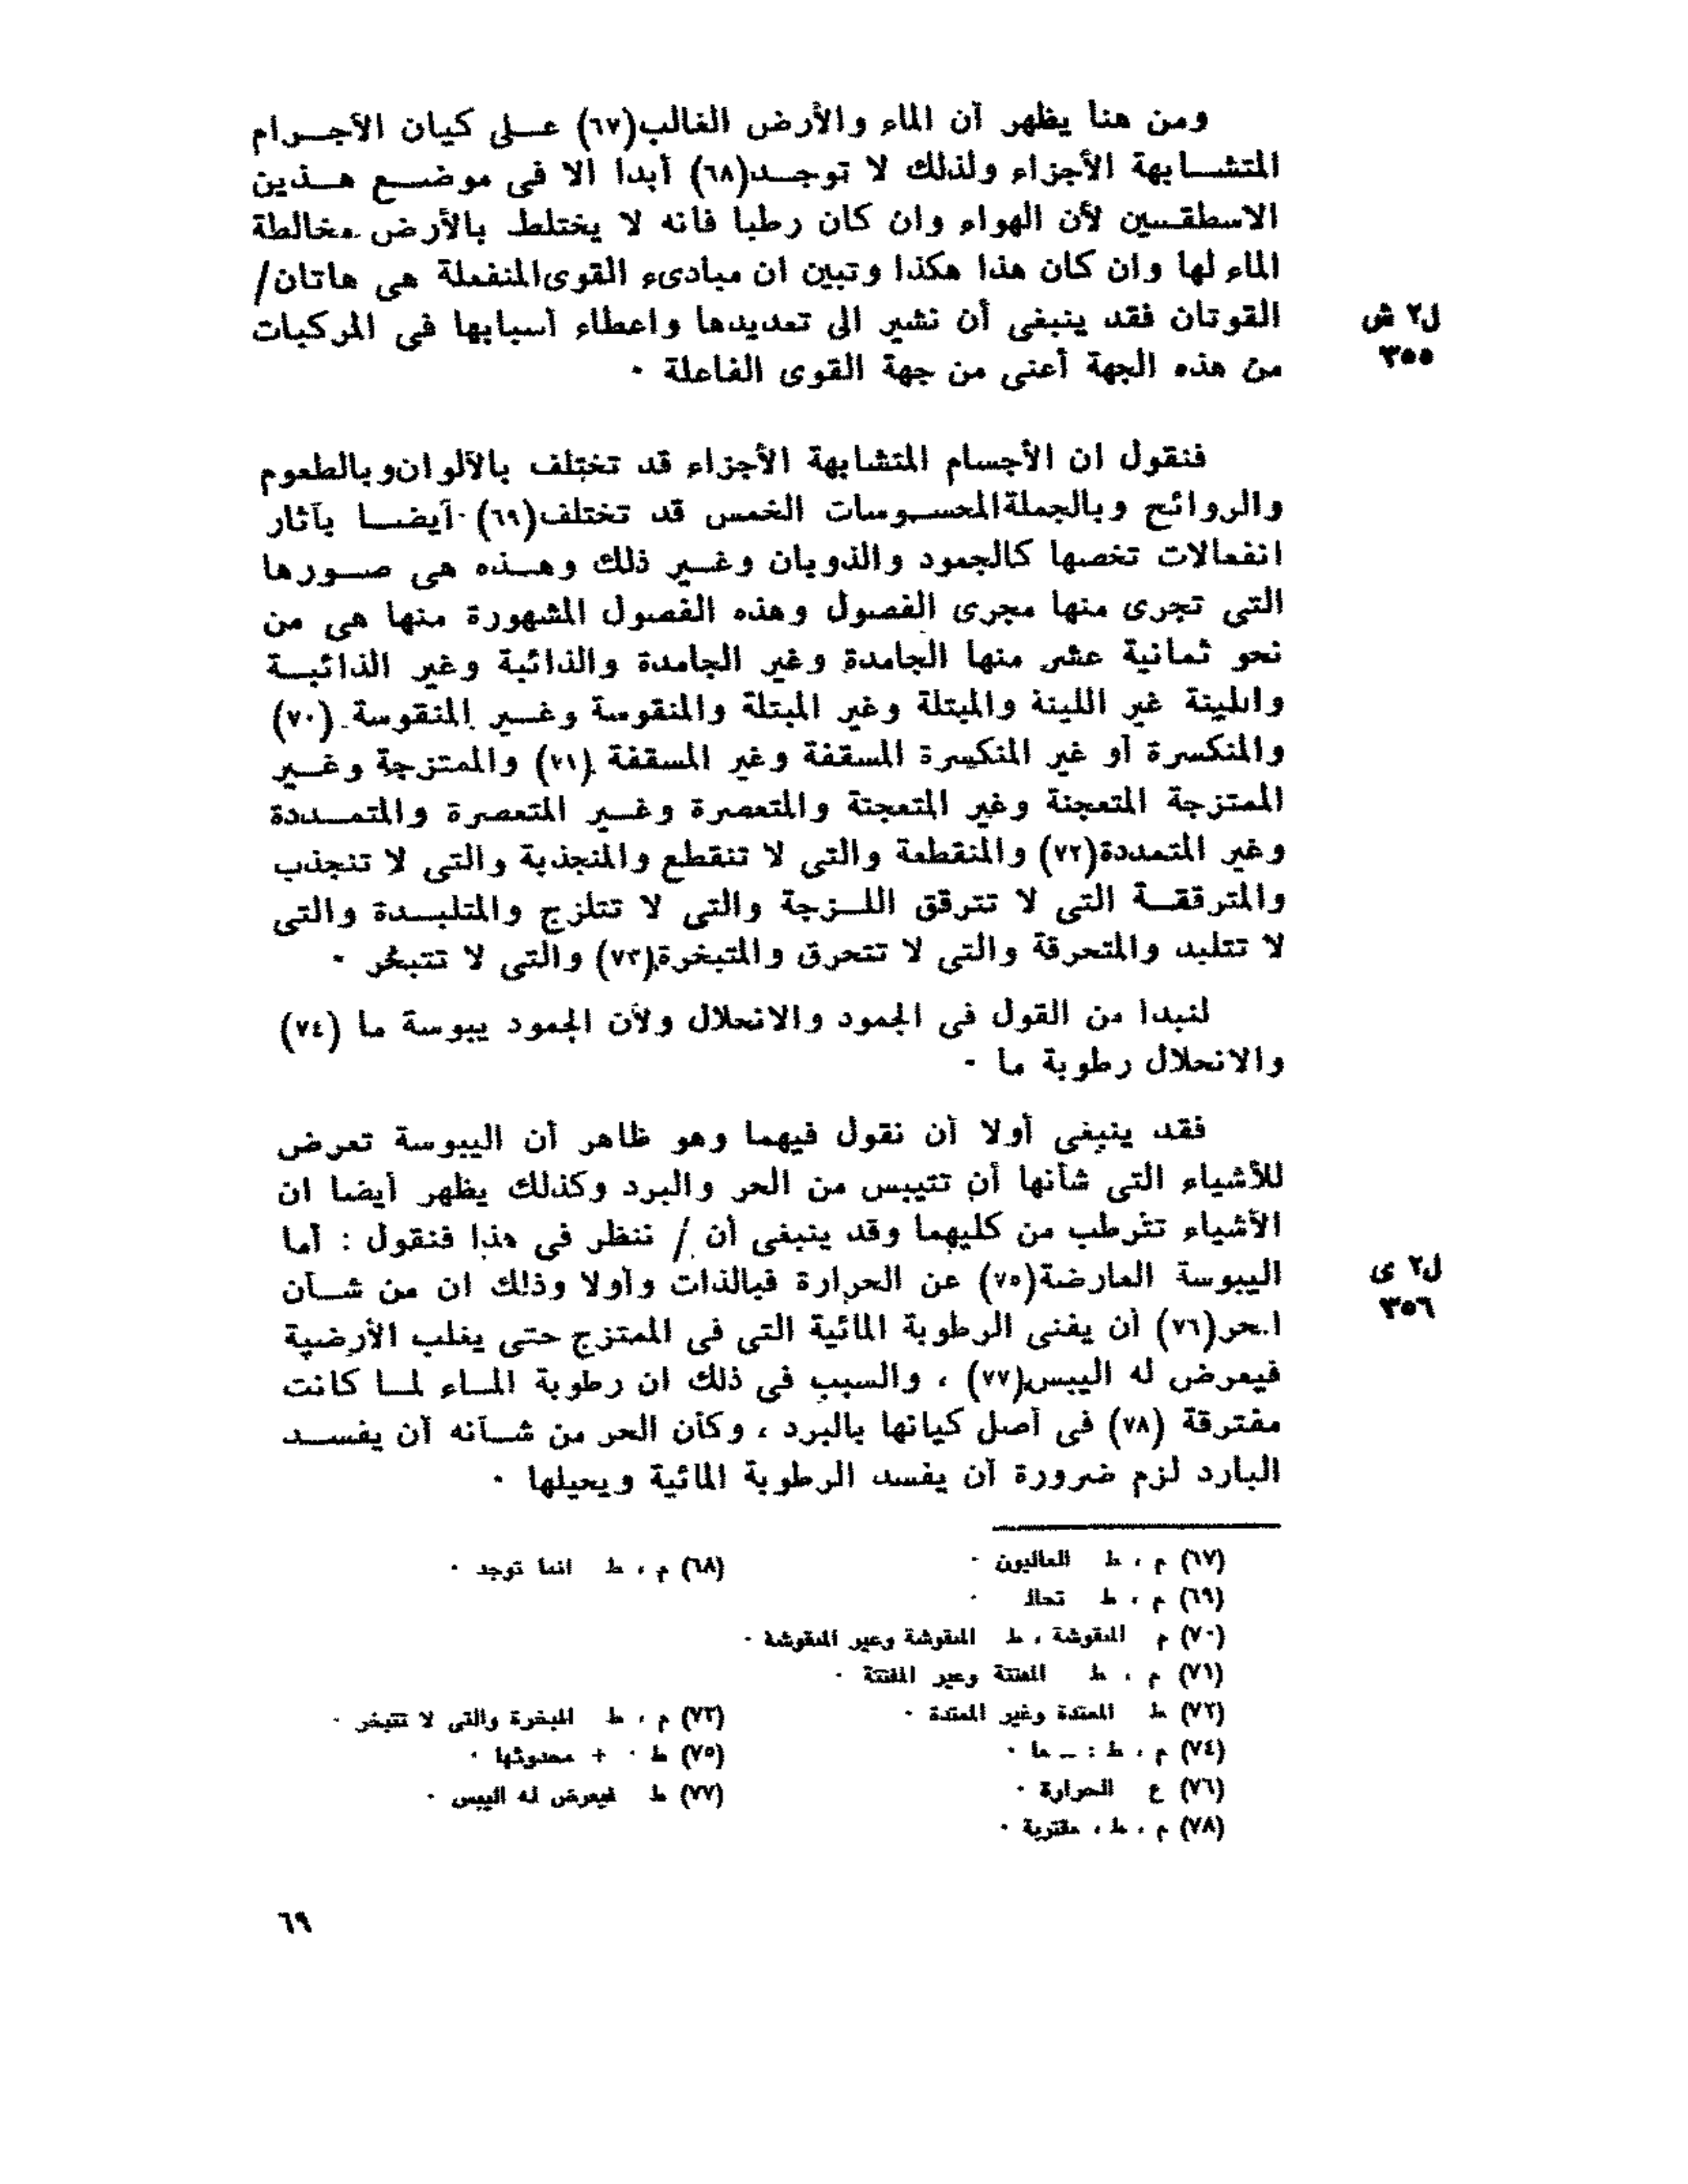 ومن هنا يظهر أن الماء والأرض الغالب(٦٧) عـلى كيان الأجـرام
المتشـابهة الأجزاء ولذلك لا توجـد(٦٨) أبدا الا فى موضـع هـذين
الاسطقـسين لأن الهواء وان كان رطبا فانه لا يختلط بالأرض مخالطة
الماء لها وان كان هذا هكذا وتبين ان مبادىء القوى المنفعلة هى هاتان/
ل٢ ش
٣٥٥
القوتان فقد ينبغى أن نشير الى تعديدها واعطاء أسبابها فى المركبات
من هذه الجهة أعنى من جهة القوى الفاعلة ٠
فنقول ان الأجسام المتشابهة الأجزاء قد تختلف بالألوان وبالطعوم
والروائح وبالجملة المحسـوسات الخمس قد تختلف(٦٩) أيضـا بآثار
انفعالات تخصها كالجمود والذوبان وغـير ذلك وهـذه هى صـورها
التى تجرى منها مجرى الفصول وهذه الفصول المشهورة منها هى من
نحو ثمانية عشر منها الجامدة وغير الجامدة والذائبة وغير الذائبـة
واللينة غير اللينة والمبتلة وغير المبتلة والمنقوسة وغـير المنقوسة (٧٠)
والمنكسرة أو غير المنكسرة المسقفة وغير المسقفة (٧١) والممتزجة وغـير
الممتزجة المتعجنة وغير المتعجنة والمتعصرة وغـير المتعصرة والمتمـددة
وغير المتمددة(٧٢) والمنقطعة والتى لا تنقطع والمنجذبة والتى لا تنجذب
والمترققـة التى لا تترقق اللـزجة والتى لا تتلزج والمتلبـدة والتى
لا تتلبد والمتحرقة والتى لا تتحرق والمتبخرة(٧٣) والتى لا تتبخر ٠
لنبدا من القول فى الجمود والانحلال ولأن الجمود يبوسة ما (٧٤)
والانحلال رطوبة ما ٠
فقد ينبغى أولا أن نقول فيهما وهو ظاهر أن اليبوسة تعرض
للأشياء التى شأنها أن تتيبس من الحر والبرد وكذلك يظهر أيضا ان
الأشياء تترطب من كليهما وقد ينبغى أن / ننظر فى هذا فنقول : أما
ل٢ ى
٣٥٦
اليبوسة العارضة(٧٥) عن الحرارة فبالذات وأولا وذلك ان من شـأن
الحر(٧٦) أن يفنى الرطوبة المائية التى فى الممتزج حتى يغلب الأرضية
فيعرض له اليبس(٧٧) ، والسبب فى ذلك ان رطوبة المـاء لمـا كانت
مفترقة (٧٨) فى أصل كيانها بالبرد ، وكأن الحر من شـأنه أن يفسـد
البارد لزم ضرورة أن يفسد الرطوبة المائية ويحيلها ٠
(٦٧) م ، ط العالبون ٠
(٦٨) م ، ط انما توجد ٠
(٦٩) م ، ط تحالف ٠
(٧٠) م المنقوشة ، ط المنقوشة وغير المنقوشة ٠
(٧١) م ، ط المفتتة وغير المفتتة ٠
(٧٢) ط الممتدة وغير الممتدة ٠
(٧٣) م ، ط المبخرة والتى لا تتبخر ٠
(٧٤) م ، ط : ــ ما ٠
(٧٥) ط ٠ + محدوثها ٠
(٧٦) ع الحرارة ٠
(٧٧) ط فيعرض له اليبس ٠
(٧٨) م ، ط ، مقتربة ٠
٦٩